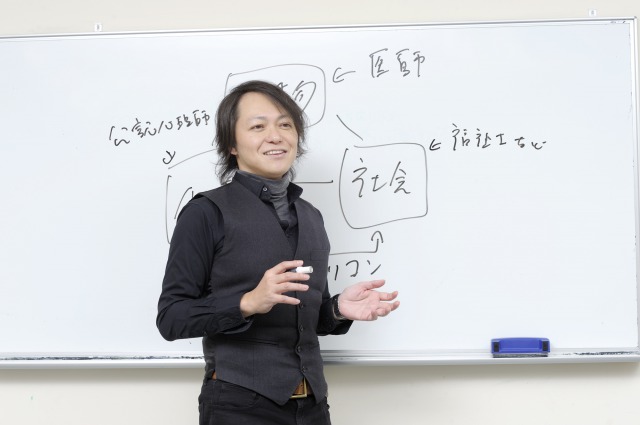 医師
公認心理師
福祉士など
社会
リコン